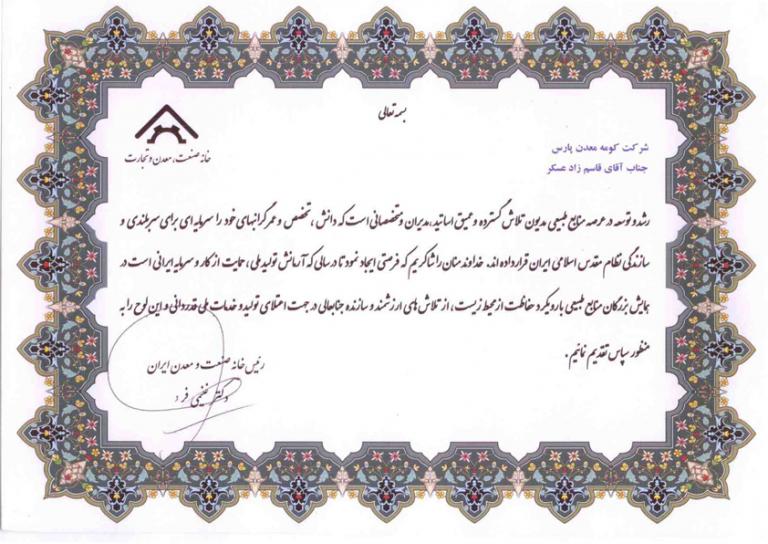 بسمه تعالی
خانه صنعت، معدن و تجارت
شرکت کومه معدن پارس
جناب آقای قاسم زاد عسکر
رشد و توسعه در عرصه منابع طبیعی مدیون تلاش گسترده و عمیق اساتید، مدیران و متخصصانی است که دانش ، تخصص و عمر گرانبهای خود را سرمایه ای برای سربلندی و
سازندگی نظام مقدس اسلامی ایران قرار داده اند. خداوند منان را شاکریم که فرصتی ایجاد نمود تا در سالی که آرمانش تولید ملی ، حمایت از کار و سرمایه ایرانی است در
همایش بزرگان منابع طبیعی با رویکرد حفاظت از محیط زیست ، از تلاش های ارزشمند و سازنده جنابعالی در جهت اعتلای تولید و خدمات ملی قدردانی و این لوح را به
منظور سپاس تقدیم نمائیم .
رئیس خانه صنعت و معدن ایران
دکتر غنیمی فرد